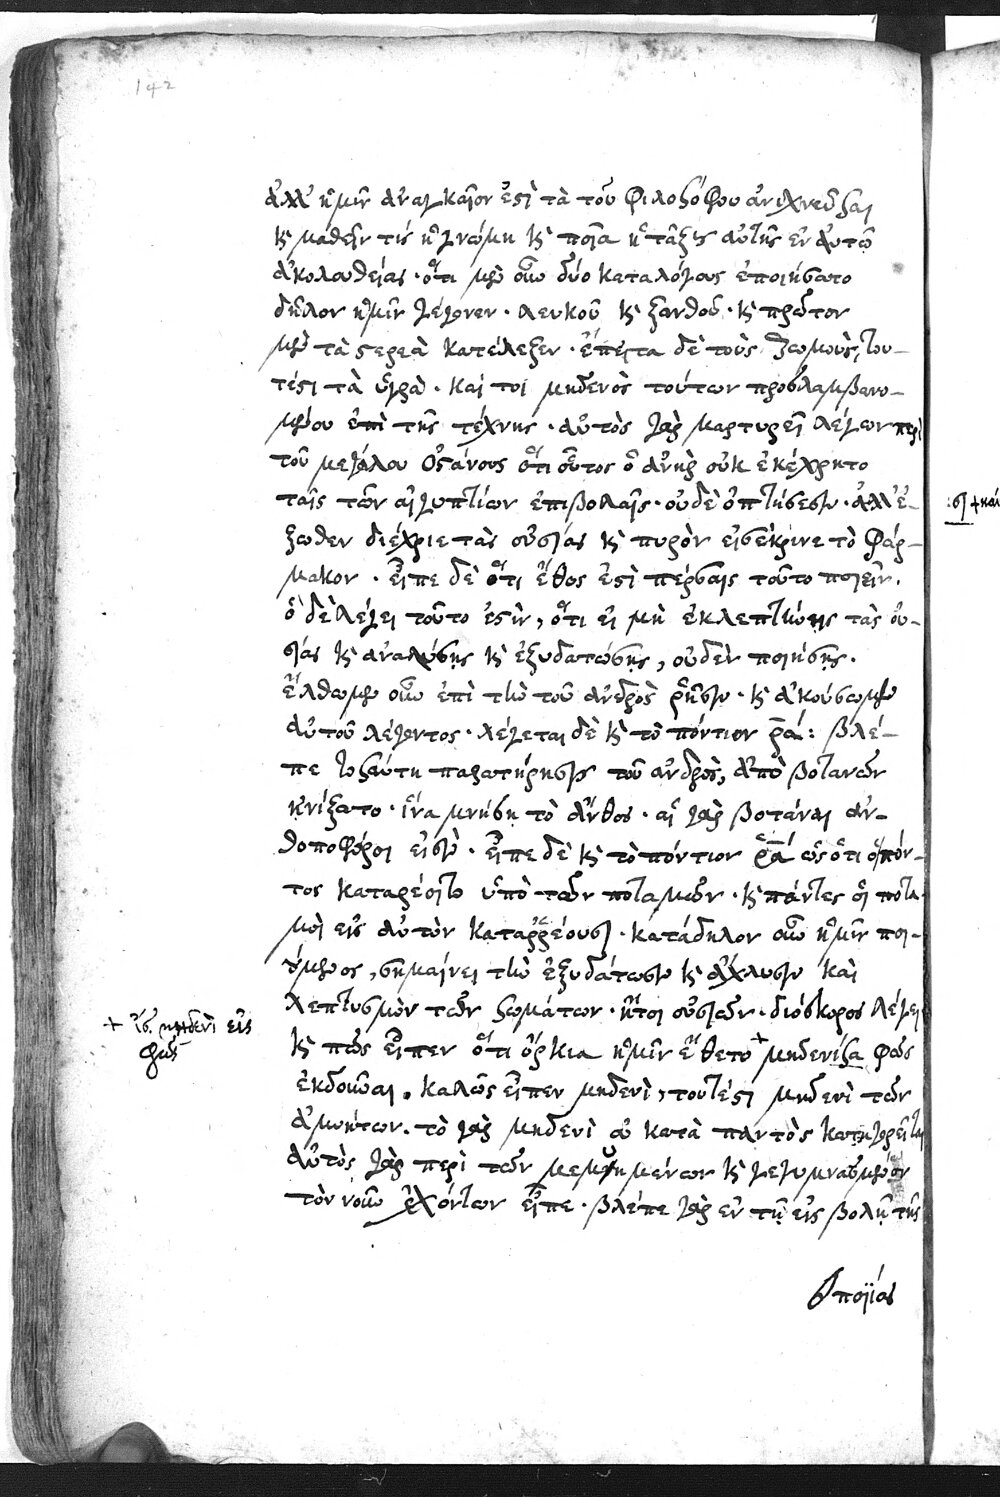 142
ἀλλ' ἡμῖν ἀναγκαῖον ἐστὶ τὰ τοῦ φιλοσόφου ἀνιχνεῦσαι
κ μαθεῖν τίς ἡ γνώμη κ ποῖα ἡ τάξις αὐτῆς ἐν αὐτῶ
ἀκολουθείας · ὅτι μὲν οὖν δύο καταλόγους ἐποιήσατο
δῆλον ἡμῖν γέγονεν · λευκοῦ κ ξανθοῦ · κ πρῶτον
μὲν τὰ στερεὰ κατέλεξεν · ἔπειτα δὲ τοὺς ζωμοὺς, του-
τέστι τὰ ὑγρὰ · καί τοι μηδενὸς τούτων προσλαμβανο-
μένου ἐπὶ τῆς τέχνης · αὐτὸς γὰρ μαρτυρεῖ λέγων περὶ
τοῦ μεγάλου Ὀστάνους ὅτι οὗτος ὁ ἀνὴρ οὐκ ἐκέχρητο
ταῖς τῶν αἰγυπτίων ἐπιβολαῖς · οὐδὲ ὀπτήσεσιν · ἀλλ' ἔ-
ξωθεν διέχριε τὰς οὐσίας κ πυρὸν εἰσέκρινε τὸ φάρ-
μακον · εἶπε δὲ ὅτι ἔθος ἐστὶ πέρσαις τοῦτο ποιεῖν ·
ὃ δὲ λέγει τοῦτο ἐστὶν, ὅτι εἰ μὴ ἐκλεπτύνῃς τὰς οὐ-
σίας κ ἀναλύσῃς κ ἐξυδατώσῃς, οὐδὲν ποιήσῃς ·
ἔλθωμεν οὖν ἐπὶ τὴν τοῦ ἀνδρὸς ῥῆσιν · κ ἀκούσωμεν
αὐτοῦ λέγοντος · λέγεται δὲ κ τὸ πόντιον ῥᾶ : βλέ-
πε τοσαύτη παρατήρησις τοῦ ἀνδρὸς, ἀπὸ βοτανῶν
ἠνίξατο · ἵνα μνήσῃ τὸ ἄνθος · αἱ γὰρ βοτάναι ἀν-
θοποφόροι εἰσὶν · εἶπε δὲ κ τὸ πόντιον ῥᾶ ὡς ὅτι ὁ πόν-
τος καταρέοιτο ὑπὸ τῶν ποταμῶν · κ πάντες οἱ ποτα-
μοὶ εἰς αὐτὸν καταρρέουσι · κατάδηλον οὖν ἡμῖν ποι-
ούμενος, σημαίνει τὴν ἐξυδάτωσιν κ ἀχλυσιν καὶ
λεπτυσμὸν τῶν σωμάτων · ἤτοι οὐσιῶν · διόσκορος λέγει
κ πῶς εἶπεν ὅτι ὅρκια ἡμῖν ἔθετο + μηδενίζα φῶς
ἐκδοῦναι · καλῶς εἶπεν μηδενὶ, τουτέστι μηδενὶ τῶν
ἀμυήτων · τὸ γὰρ μηδενὶ οὐ κατὰ παντὸς κατηγορεῖται
αὐτὸς γὰρ περὶ τῶν μεμυημένων κ γεγυμνασμένον
τὸν νοῦν ἐχόντων εἶπε · βλέπε γὰρ ἐν τῇ εἰς βολῇ τῆς
ποιίας
+ ἴσ. μηδενὶ εἰς
φῶς